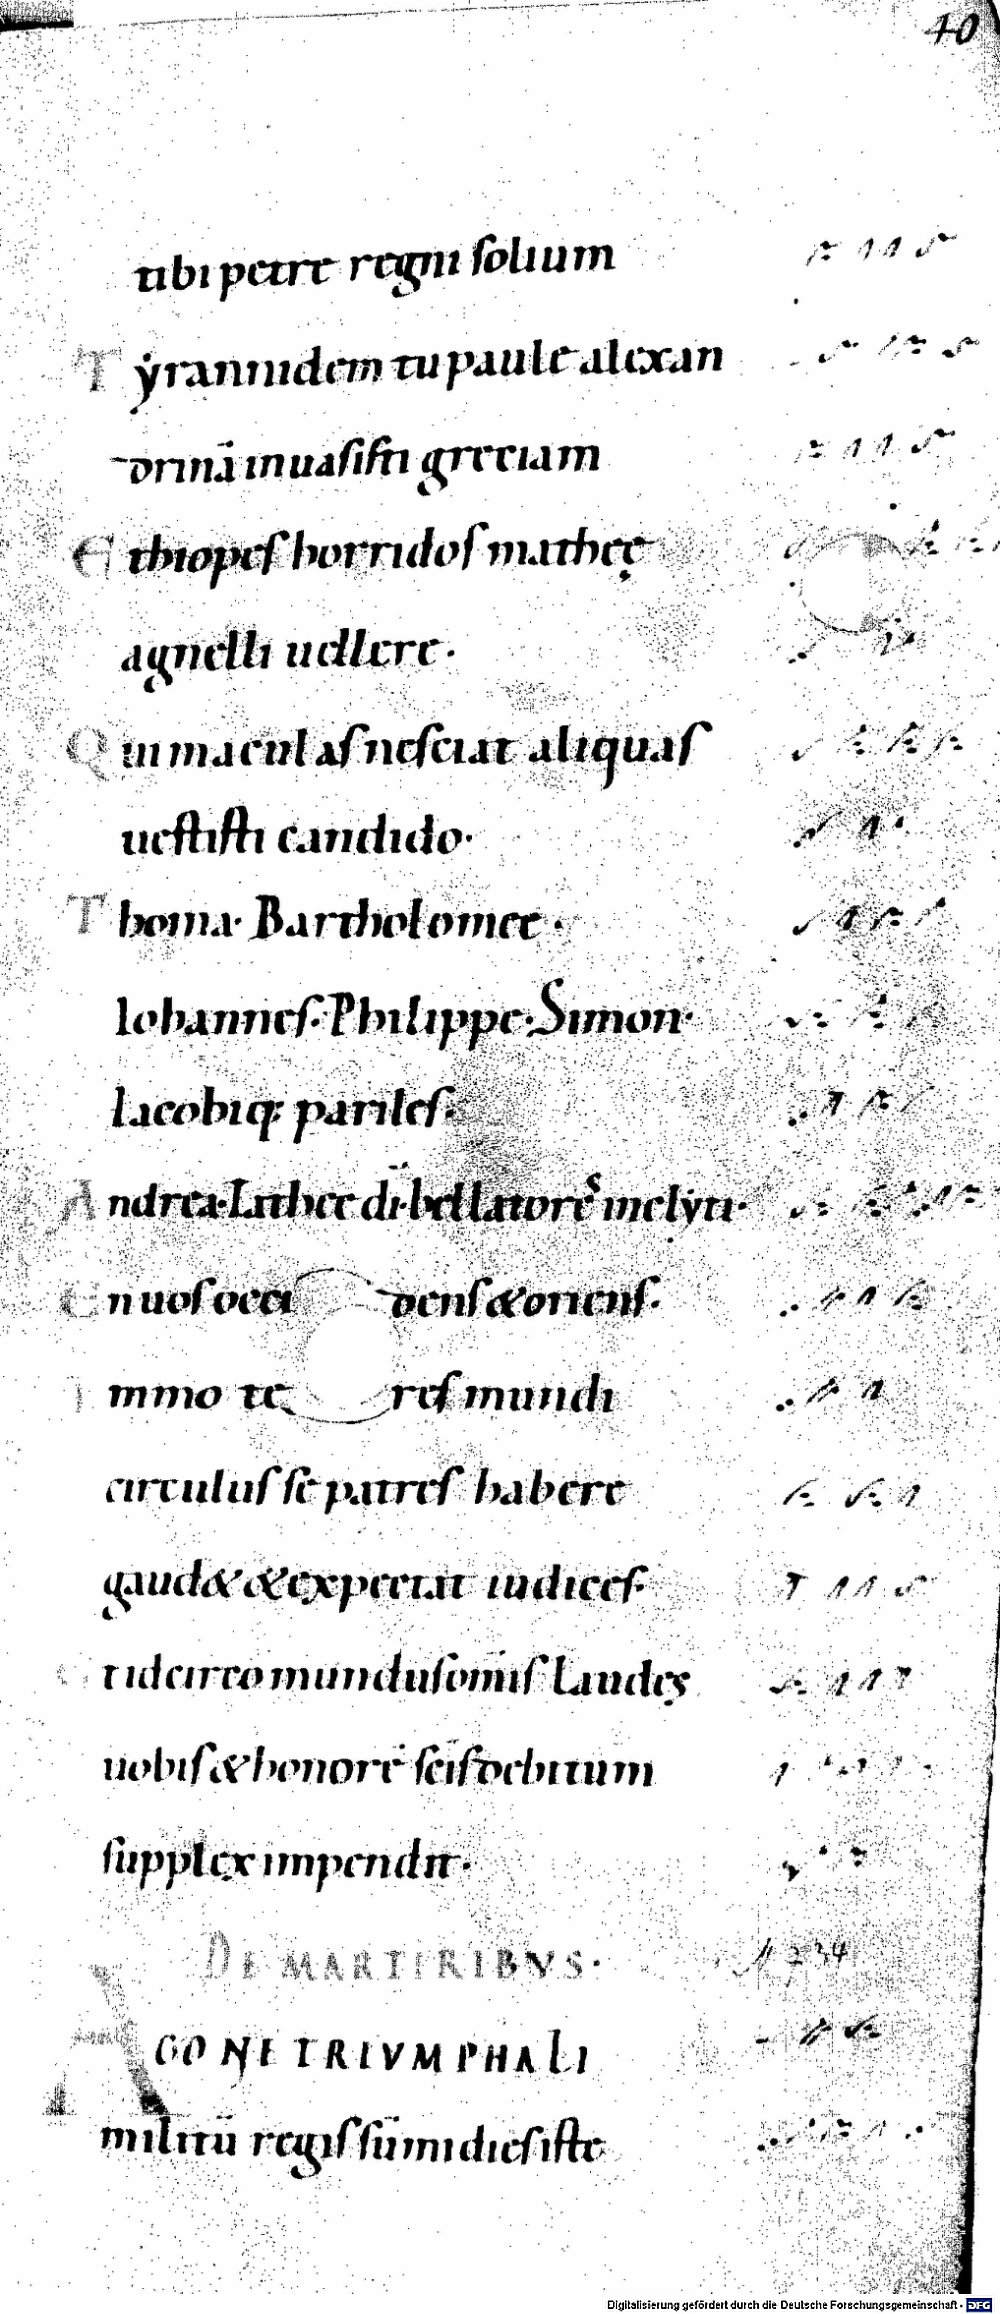 10
tibi petre regni solium
Tẏrannidem tu paule alexan
drinā inuasisti greciam
Ethiopes horridos matheę
agnelli uellere.
Qui maculas nesciat aliquas
uestisti candido.
Thoma. Bartholomee.
Iohannes. Philippe. Simon.
Iacobiq; pariles.
Andrea. Tathee di. bellatores inclẏti.
En uos occi dens & oriens.
Immo te res mundi
circulus se patres habere
gaud& & expectat iudices.
Et idcirco mundus om̄is laudes
uobis & honorē sc̄is debitum
supplex impendit.
DE MARTIRIBVS.
AGONE TRIVMPHALI
militū regis sūmi dies iste
Digitalisierung gefördert durch die Deutsche Forschungsgemeinschaft - DFG